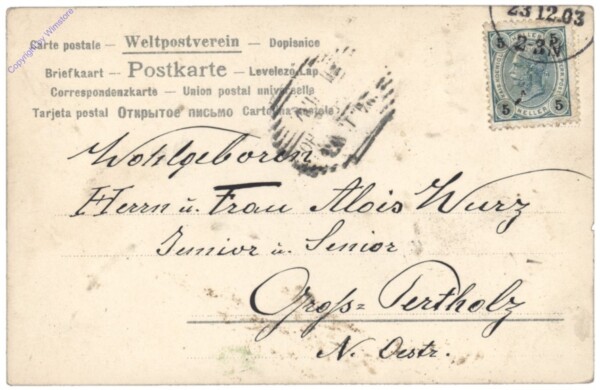 Carte postale — Weltpostverein — Dopisnice
Briefkaart — Postkarte — Levelező-Lap
Correspondenzkarte — Union postal universella
Tarjeta postal Открытое письмо Cartolina postale
23 12.03
2-3N
5 5
HELLER
5 5
Wohlgeboren
Herrn u. Frau Alois Wurz
Junior u. Senior
Groß-Pertholz
N. Oestr.